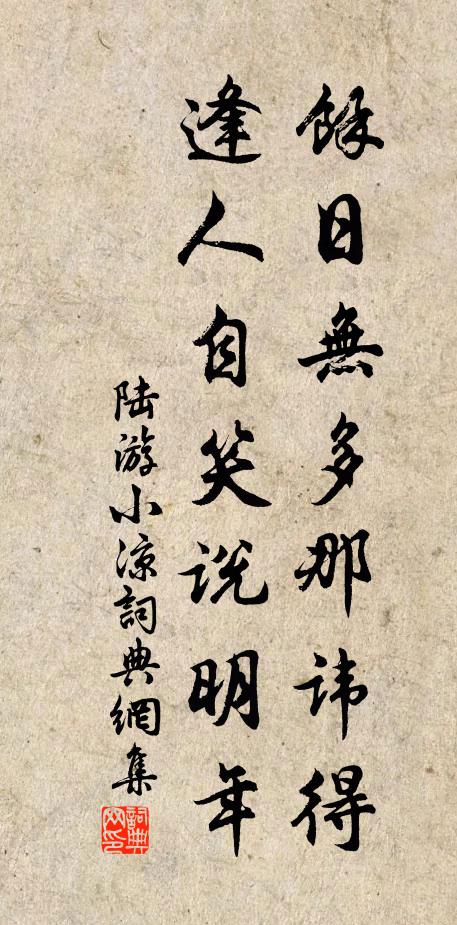 餘日無多那諱得
逢人自笑説明年
陆游小凉詞典網集
詞典网印